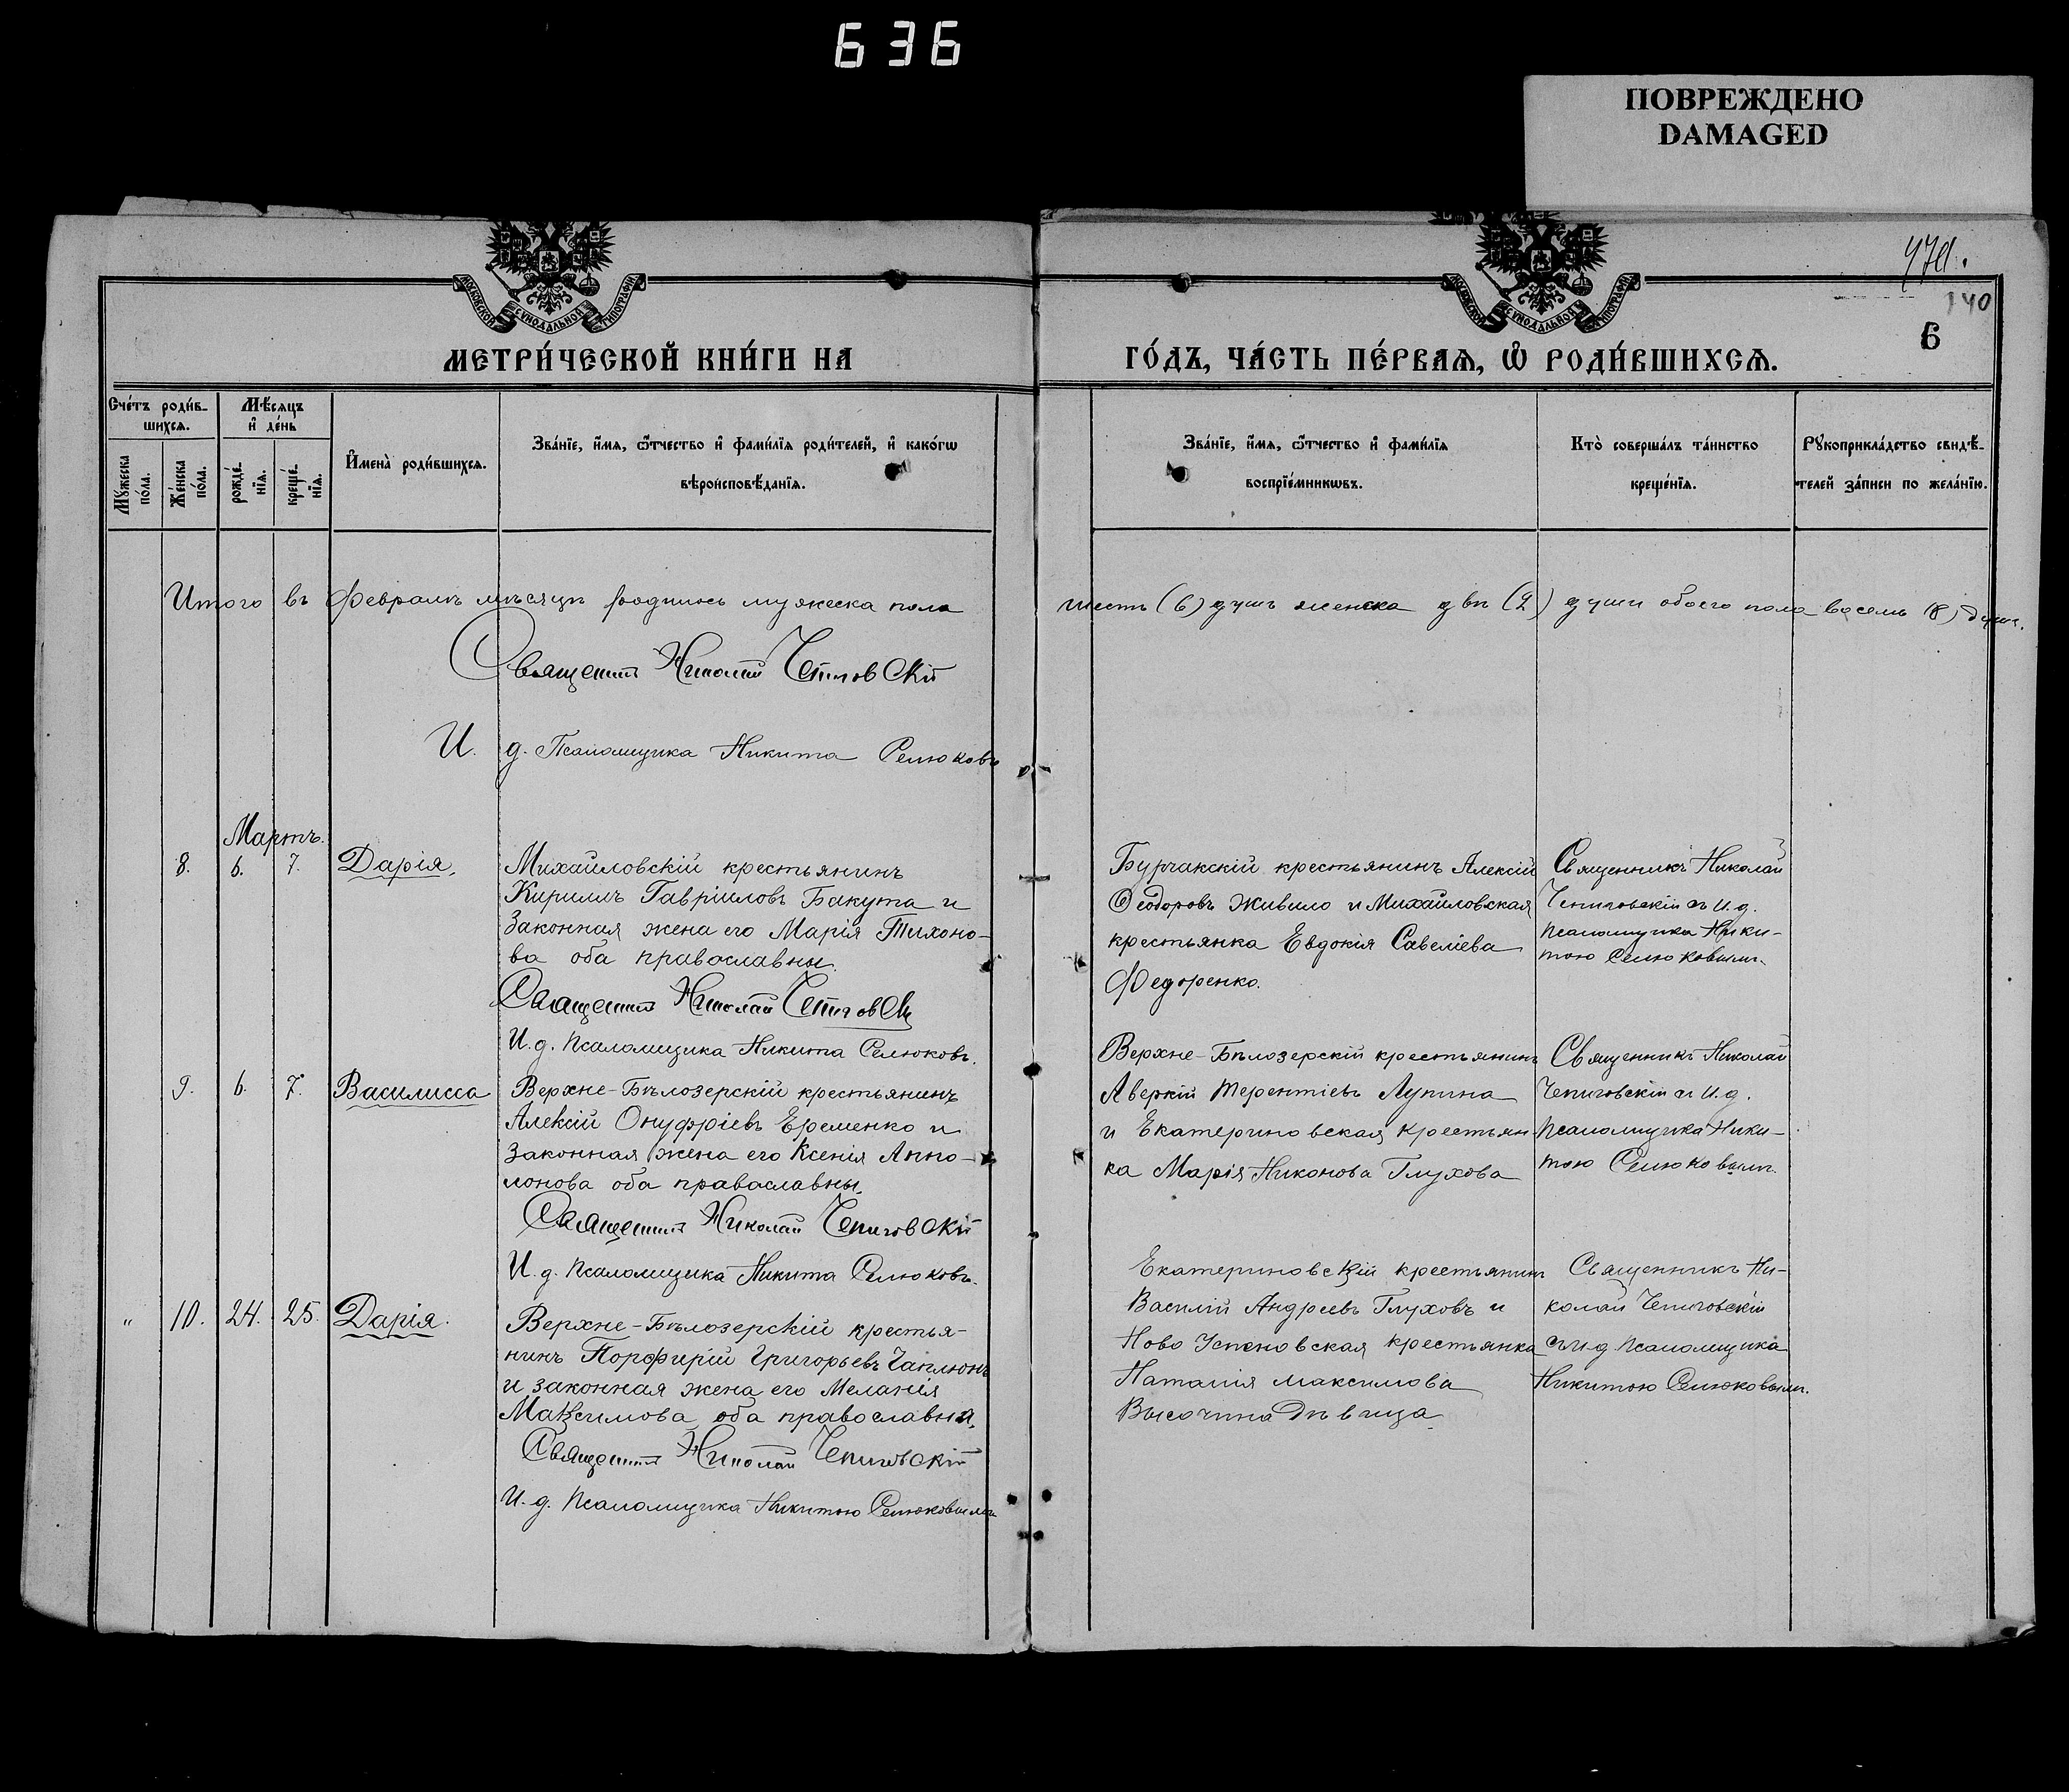 636
ПОВРЕЖДЕНО
DAMAGED
140
6
МОСКОВСКОЙ СѴНОДАЛЬНОЙ ТИПОГРАФІИ
МОСКОВСКОЙ СѴНОДАЛЬНОЙ ТИПОГРАФІИ
МЕТРИ́ЧЕСКОЙ КНИ́ГИ НА
ГО́ДЪ, ЧА́СТЬ ПЕ́РВАѦ, Ѡ҆ РОДИ́ВШИХСѦ.
Сче́тъ роди́в-
шихсѧ.
Мꙋ́жеска
по́ла.
Же́нска
по́ла.
Мѣ́сяцъ
и҆ де́нь
рожде́-
нїѧ.
креще́-
нїѧ.
И҆мена̀ роди́вшихсѧ.
Зва́нїе, и҆́мѧ, ѻ҆́тчество и҆ фами́лїѧ роди́телей, и҆ како́гѡ
вѣроисповѣ́данїѧ.
Зва́нїе, и҆́мѧ, ѻ҆́тчество и҆ фами́лїѧ
воспрїе́мникѡвъ.
Кто̀ соверша́лъ та́инство
креще́нїѧ.
Рꙋкоприкла́дство свидѣ́-
телей за́писи по жела́нїю.
Итого въ Февралѣ мѣсяцѣ родилось мужеска пола
шесть (6) душъ женска двѣ (2) души обоего пола восемь (8) душъ.
Священникъ Николай Чепиговскій
И. д. Псаломщика Никита Селюковъ
Мартъ.
8. 6. 7. Дарія.
Михайловскій крестьянинъ
Кириллъ Гавріиловъ Бакута и
Законная жена его Марія Тихоно-
ва оба православны.
Священникъ Николай Чепиговскій
И. д. Псаломщика Никита Селюковъ.
Бурчакскій крестьянинъ Алексій
Ѳеодоровъ Живило и Михайловская
крестьянка Евдокія Савеліева
Федоренко.
Священникъ Николай
Чепиговскій съ И. д.
псаломщика Ники-
тою Селюковымъ.
9. 6. 7. Василисса
Верхне-Бѣлозерскій крестьянинъ
Алексій Онуфріевъ Еременко и
Законная жена его Ксенія Аппо-
лонова оба православны.
Священникъ Николай Чепиговскій
И. д. Псаломщика Никита Селюковъ.
Верхне-Бѣлозерскій крестьянинъ
Аверкій Терентіевъ Лупина
и Екатериновская Крестьян-
ка Марія Никонова Глухова
Священникъ Николай
Чепиговскій съ И. д.
Псаломщика Ники-
тою Селюковымъ.
" 10. 24. 25. Дарія.
Верхне-Бѣлозерскій крестья-
нинъ Порфирій Григорьевъ Чаплюнъ
и законная жена его Меланія
Максимова оба православны.
Священникъ Николай Чепиговскій
И. д. Псаломщика Никитою Селюковымъ
Екатериновскій крестьянинъ
Василій Андреевъ Глуховъ и
Ново Успеновская крестьянка
Наталія Максимова
Высочина Дѣвица
Священникъ Ни-
колай Чепиговскій
съ И. д Псаломщика
Никитою Селюковымъ.